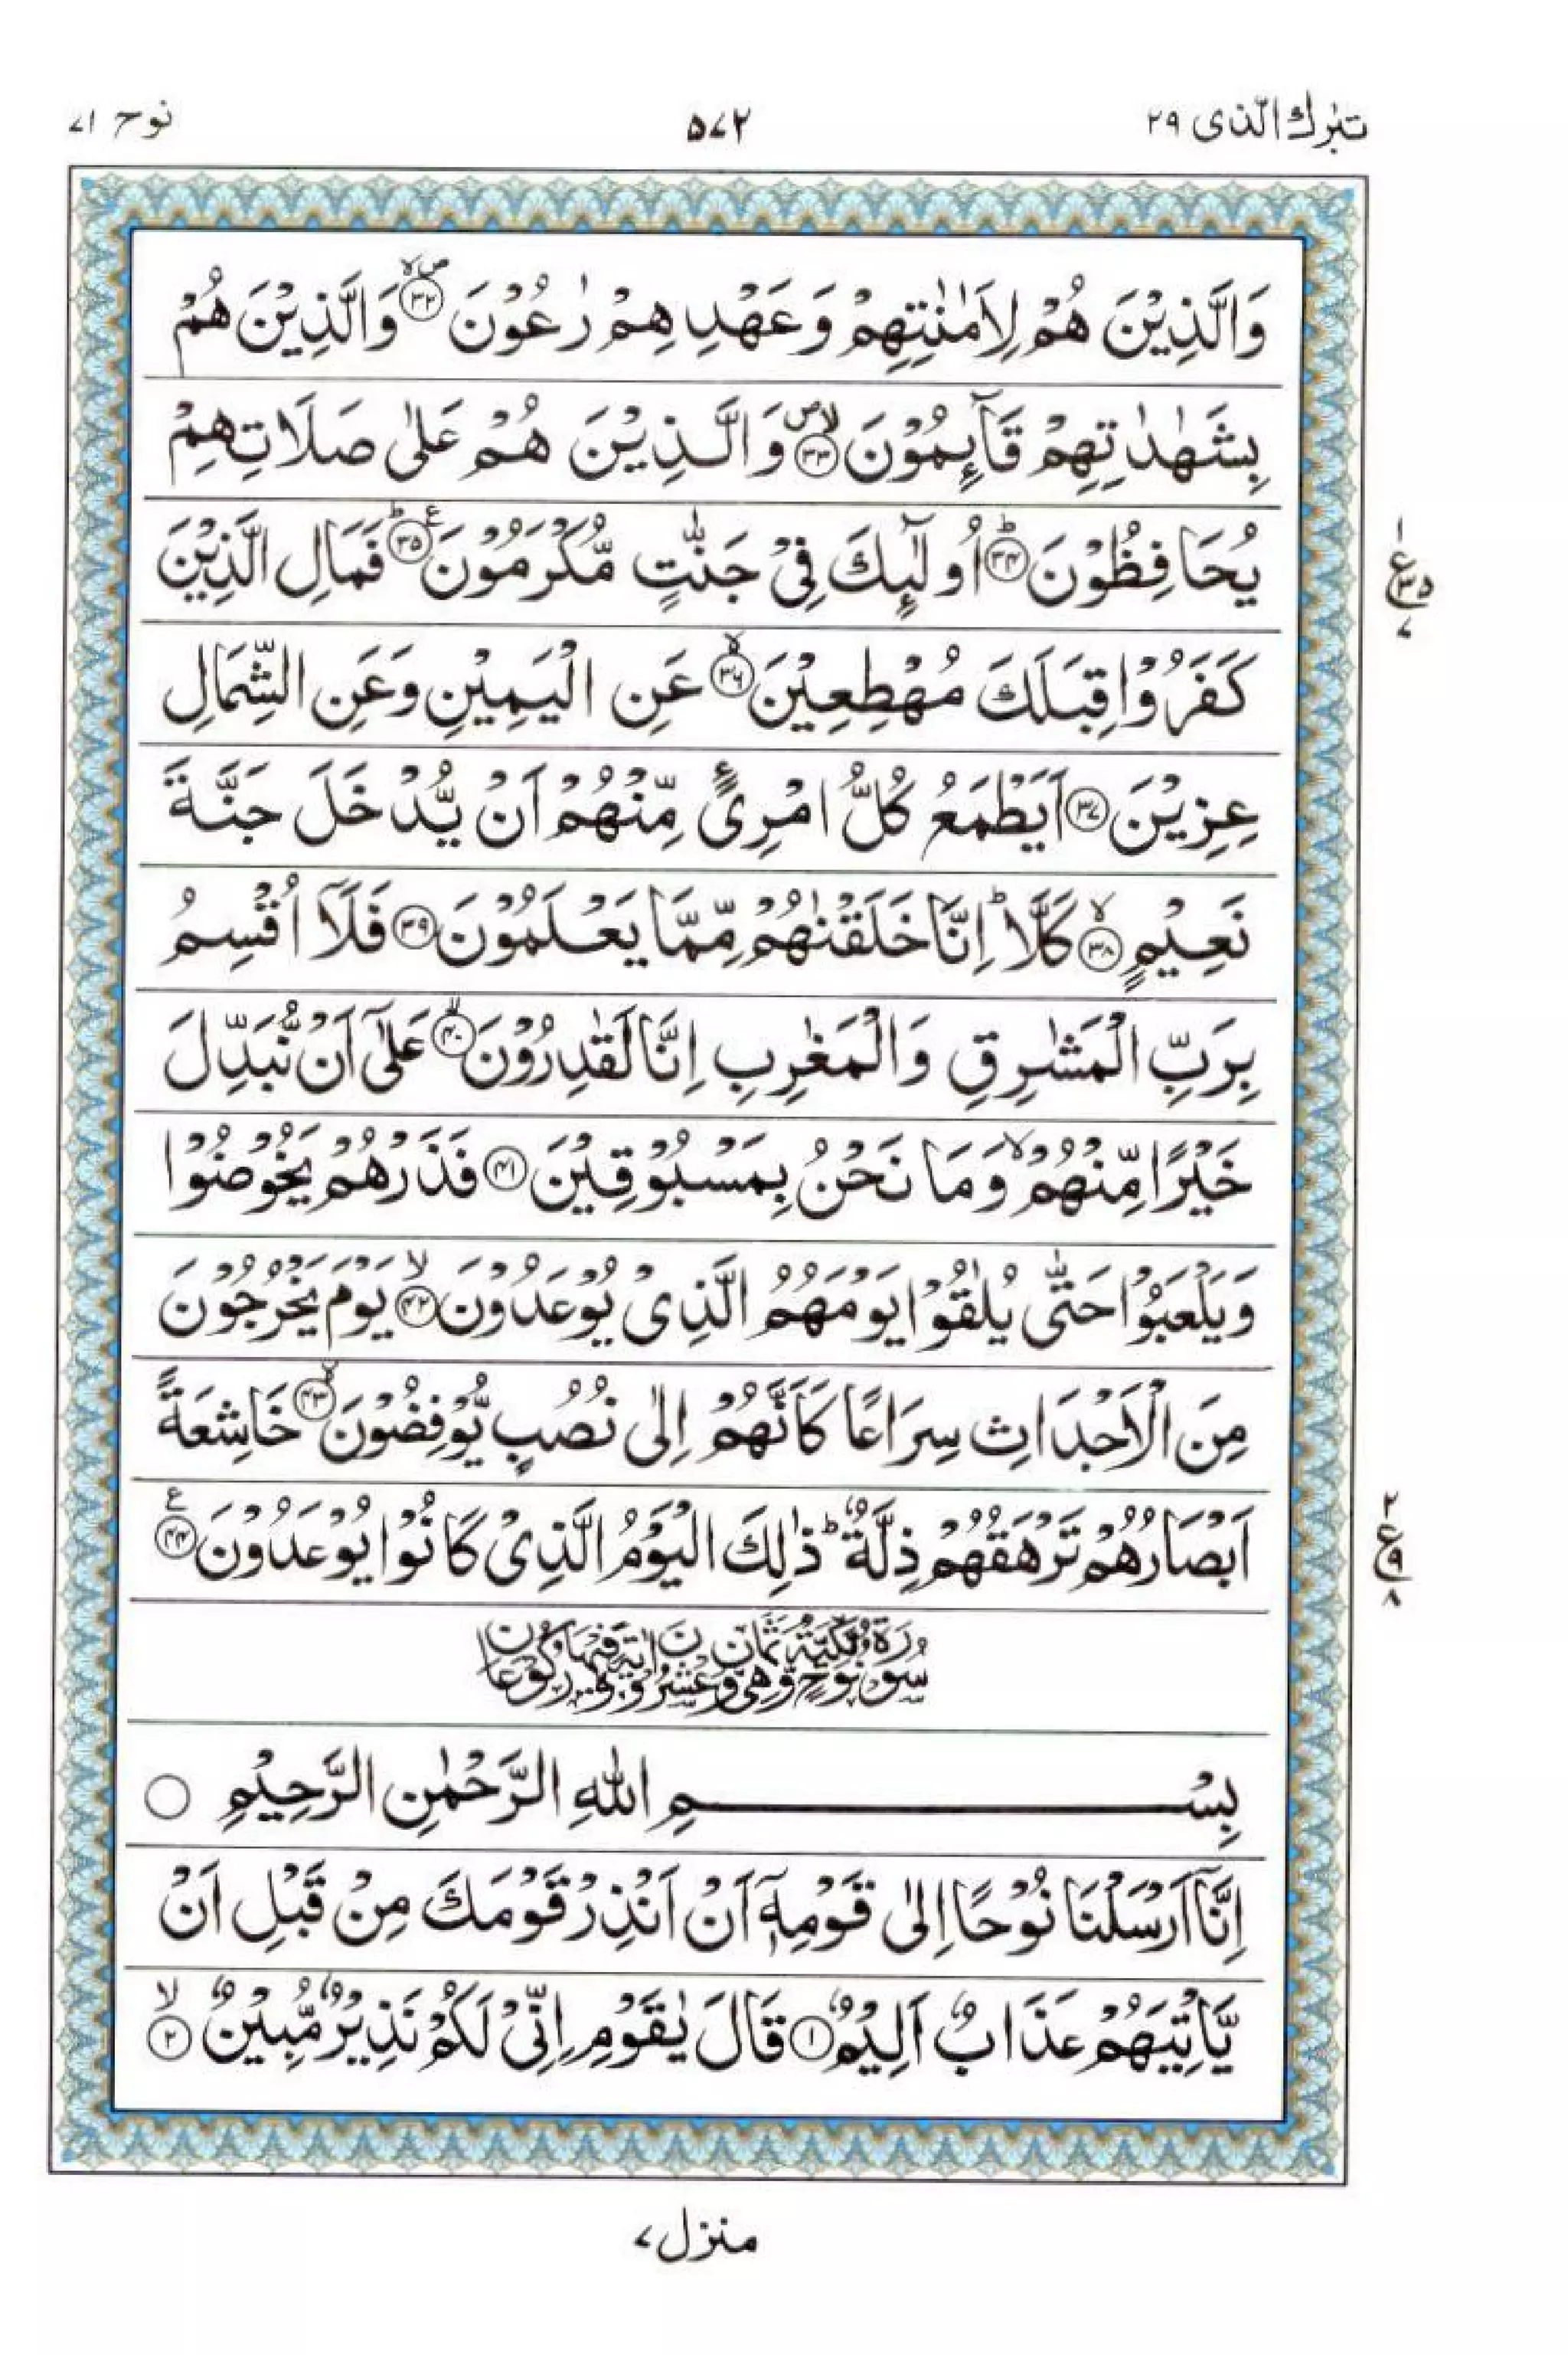 تبٰرك الّذی ۲۹
۵۷۲
نوح ۷۱
وَالَّذِيْنَ هُمْ لِاَمٰنٰتِهِمْ وَعَهْدِهِمْ رٰعُوْنَ ۳۲ وَالَّذِيْنَ هُمْ
بِشَهٰدٰتِهِمْ قَآئِمُوْنَ ۳۳ وَالَّذِيْنَ هُمْ عَلٰى صَلَاتِهِمْ
يُحَافِظُوْنَ ۳۴ اُولٰٓئِكَ فِيْ جَنّٰتٍ مُّكْرَمُوْنَ ۳۵ فَمَالِ الَّذِيْنَ
كَفَرُوْا قِبَلَكَ مُهْطِعِيْنَ ۳۶ عَنِ الْيَمِيْنِ وَعَنِ الشِّمَالِ
عِزِيْنَ ۳۷ اَيَطْمَعُ كُلُّ امْرِئٍ مِّنْهُمْ اَنْ يُّدْخَلَ جَنَّةَ
نَعِيْمٍ ۳۸ كَلَّا ؕ اِنَّا خَلَقْنٰهُمْ مِّمَّا يَعْلَمُوْنَ ۳۹ فَلَآ اُقْسِمُ
بِرَبِّ الْمَشٰرِقِ وَالْمَغٰرِبِ اِنَّا لَقٰدِرُوْنَ ۴۰ عَلٰٓى اَنْ نُّبَدِّلَ
خَيْرًا مِّنْهُمْ ۙ وَمَا نَحْنُ بِمَسْبُوْقِيْنَ ۴۱ فَذَرْهُمْ يَخُوْضُوْا
وَيَلْعَبُوْا حَتّٰى يُلٰقُوْا يَوْمَهُمُ الَّذِيْ يُوْعَدُوْنَ ۴۲ يَوْمَ يَخْرُجُوْنَ
مِنَ الْاَجْدَاثِ سِرَاعًا كَاَنَّهُمْ اِلٰى نُصُبٍ يُّوْفِضُوْنَ ۴۳ خَاشِعَةً
اَبْصَارُهُمْ تَرْهَقُهُمْ ذِلَّةٌ ؕ ذٰلِكَ الْيَوْمُ الَّذِيْ كَانُوْا يُوْعَدُوْنَ ۴۴
سُوْرَةُ نُوْحٍ مَّكِّيَّةٌ وَّهِيَ ثَمَانٍ وَّعِشْرُوْنَ اٰيَةً وَّفِيْهَا رُكُوْعَانِ
بِسْمِ اللّٰهِ الرَّحْمٰنِ الرَّحِيْمِ
اِنَّآ اَرْسَلْنَا نُوْحًا اِلٰى قَوْمِهٖٓ اَنْ اَنْذِرْ قَوْمَكَ مِنْ قَبْلِ اَنْ
يَّاْتِيَهُمْ عَذَابٌ اَلِيْمٌ ۱ قَالَ يٰقَوْمِ اِنِّيْ لَكُمْ نَذِيْرٌ مُّبِيْنٌ ۲
۱
ع
۳۵
۷
۲
ع
۹
۸
منزل ۷